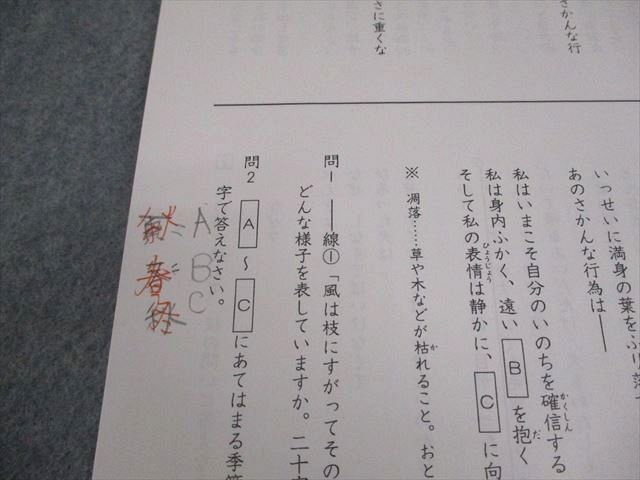 さかんな行
さに重くな
いっせいに満身の葉をふり落
あのさかんな行為は――
私はいまこそ自分のいのちを確信する
かくしん
私は身内ふかく、遠い B を抱く
だ
そして私の表情は静かに、 C に向
ひょうじょう
※ 凋落……草や木などが枯れること。おと
か
問1 ――線①「風は枝にすがってその
どんな様子を表していますか。二十字
問2 A ～ C にあてはまる季節
字で答えなさい。
A
B
C
秋
春
冬